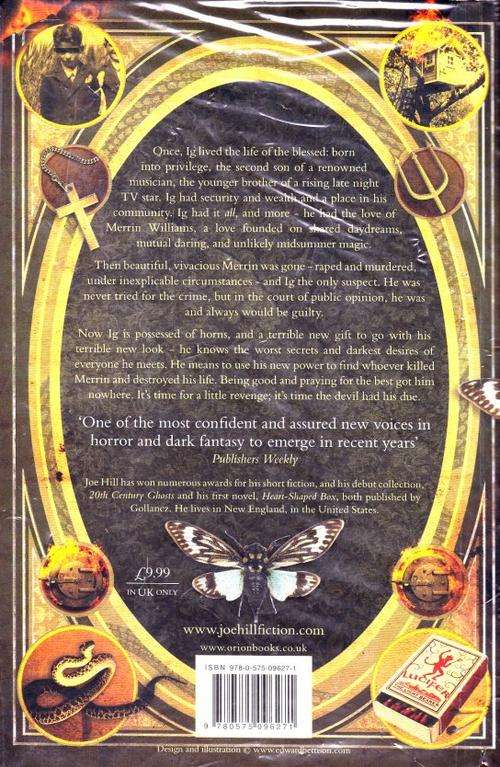 Once, Ig lived the life of the blessed: born
into privilege, the second son of a renowned
musician, the younger brother of a rising late night
TV star. Ig had security and wealth and a place in his
community. Ig had it all, and more - he had the love of
Merrin Williams, a love founded on shared daydreams,
mutual daring, and unlikely midsummer magic.
Then beautiful, vivacious Merrin was gone - raped and murdered,
under inexplicable circumstances - and Ig the only suspect. He was
never tried for the crime, but in the court of public opinion, he was
and always would be guilty.
Now Ig is possessed of horns, and a terrible new gift to go with his
terrible new look - he knows the worst secrets and darkest desires of
everyone he meets. He means to use his new power to find whoever killed
Merrin and destroyed his life. Being good and praying for the best got him
nowhere. It's time for a little revenge; it's time the devil had his due.
'One of the most confident and assured new voices in
horror and dark fantasy to emerge in recent years'
Publishers Weekly
Joe Hill has won numerous awards for his short fiction, and his debut collection,
20th Century Ghosts and his first novel, Heart-Shaped Box, both published by
Gollancz. He lives in New England, in the United States.
£9.99
IN UK ONLY
www.joehillfiction.com
www.orionbooks.co.uk
ISBN 978-0-575-09627-1
9 780575 096271
LUCIFER
Design and illustration © www.edwardbettison.com